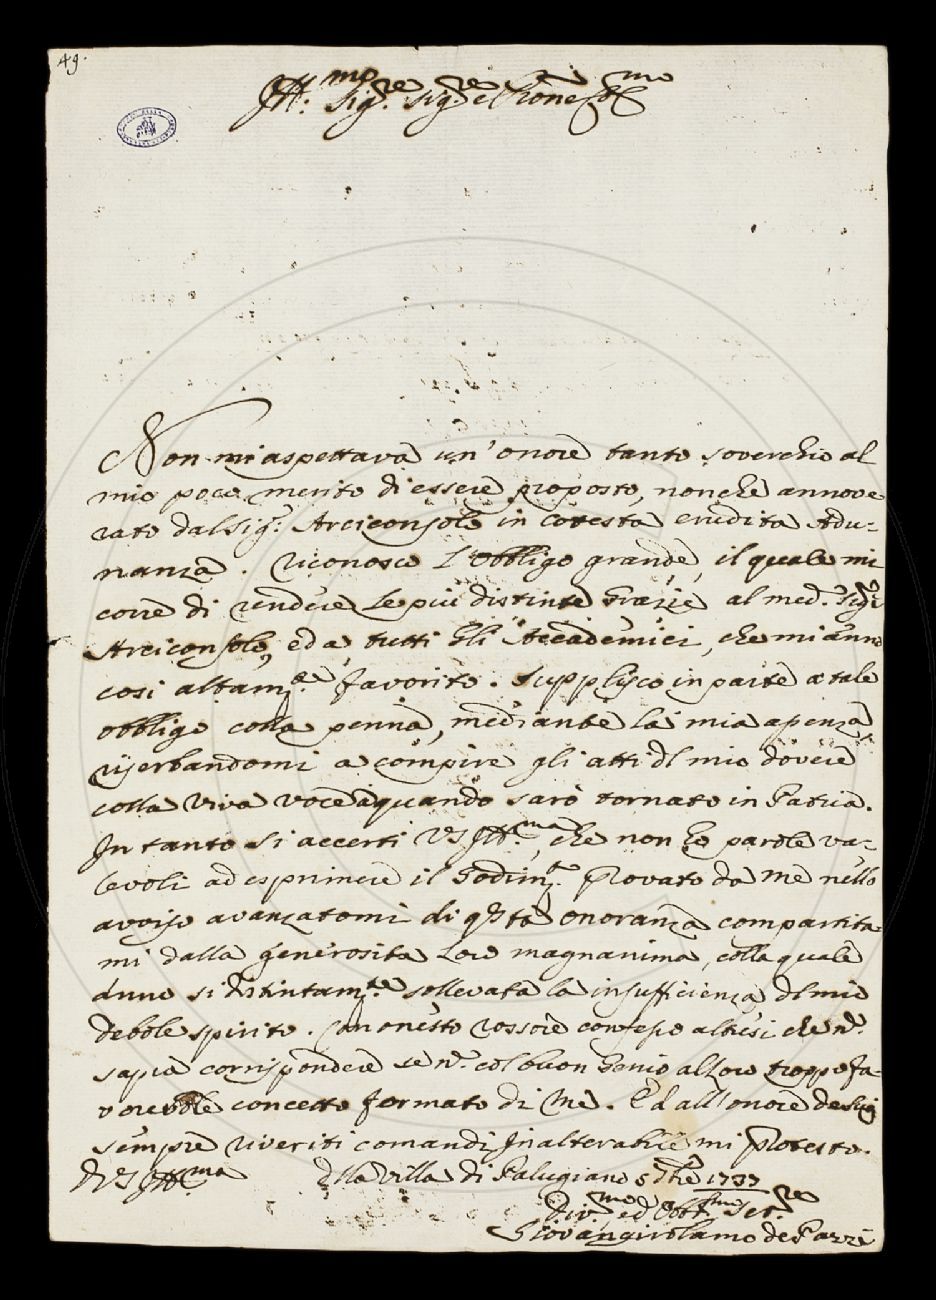 49.
Ill:mo Sig.re Sig.re e Pron
Non mi aspettava un' onore tanto soverchio al
mio poco merito di essere proposto, nonchè annove
rato dal Sig.r Arciconsolo in cotesta erudita Adu-
nanza. Riconosco l'obbligo grande, il quale mi
corre di rendere le più distinte Grazie al med.o Sig.r
Arciconsolo, ed a tutti gli Accademici, che mi anno
cosi altam.te favorito. Supplisco in parte a tale
obbligo colla penna, mediante la mia assenza,
riserbandomi a compire gli atti dl mio dovere
colla viva voce a quando sarò tornato in Patria.
In tanto si accerti VS Ill:ma, che non ho parole va-
levoli ad esprimere il Godim.to provato da me nello
avviso avanzatomi di qsta onoranza compartita-
mi dalla generosità loro magnanima, colla quale
anno si distintam.te sollevata la insufficienza dl mio
debole spirito. Con onesto rossore confesso altresi che n.
saprò corrispondere se n. col buon Genio al loro troppo fa-
vorevole concetto formato di me. Ed all'onore de suoi
sempre riveriti comandi inalterabile mi protesto.
Di VS Ill:ma Dlla villa di Palugiano 5 1737
Div.mo ed Obb.mo Ser.re
Giovangirolamo de Pazzi